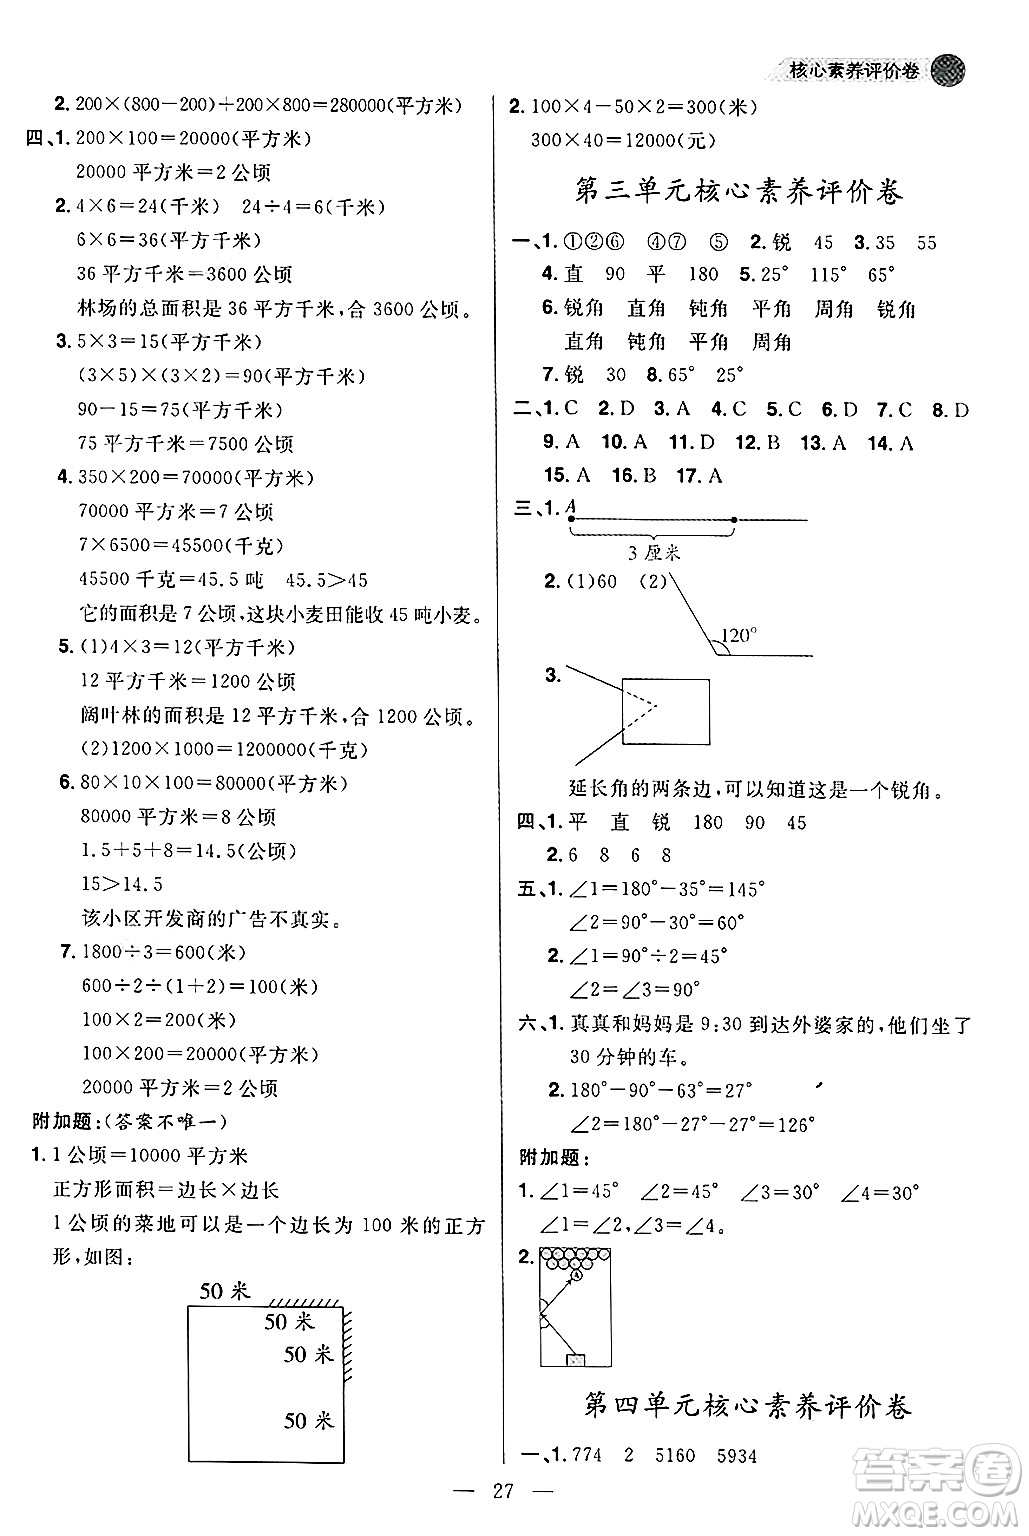 核心素养评价卷
2. 200×(800-200)+200×800=280000(平方米)
四、1. 200×100=20000(平方米)
20000 平方米=2 公顷
2. 4×6=24(千米) 24÷4=6(千米)
6×6=36(平方千米)
36 平方千米=3600 公顷
林场的总面积是 36 平方千米,合 3600 公顷。
3. 5×3=15(平方千米)
(3×5)×(3×2)=90(平方千米)
90-15=75(平方千米)
75 平方千米=7500 公顷
4. 350×200=70000(平方米)
70000 平方米=7 公顷
7×6500=45500(千克)
45500 千克=45.5 吨 45.5>45
它的面积是 7 公顷,这块小麦田能收 45 吨小麦。
5. (1)4×3=12(平方千米)
12 平方千米=1200 公顷
阔叶林的面积是 12 平方千米,合 1200 公顷。
(2)1200×1000=1200000(千克)
6. 80×10×100=80000(平方米)
80000 平方米=8 公顷
1.5+5+8=14.5(公顷)
15>14.5
该小区开发商的广告不真实。
7. 1800÷3=600(米)
600÷2÷(1+2)=100(米)
100×2=200(米)
100×200=20000(平方米)
20000 平方米=2 公顷
附加题:(答案不唯一)
1. 1 公顷=10000 平方米
正方形面积=边长×边长
1 公顷的菜地可以是一个边长为 100 米的正方
形,如图:
50 米
50 米
50 米
50 米
2. 100×4-50×2=300(米)
300×40=12000(元)
第三单元核心素养评价卷
一、1. ①②⑥ ④⑦ ⑤ 2. 锐 45 3. 35 55
4. 直 90 平 180 5. 25° 115° 65°
6. 锐角 直角 钝角 平角 周角 锐角
直角 钝角 平角 周角
7. 锐 30 8. 65° 25°
二、1. C 2. D 3. A 4. C 5. C 6. D 7. C 8. D
9. A 10. A 11. D 12. B 13. A 14. A
15. A 16. B 17. A
三、1. A
3 厘米
2. (1)60 (2)
120°
3.
延长角的两条边,可以知道这是一个锐角。
四、1. 平 直 锐 180 90 45
2. 6 8 6 8
五、1. ∠1=180°-35°=145°
∠2=90°-30°=60°
2. ∠1=90°÷2=45°
∠2=∠3=90°
六、1. 真真和妈妈是 9:30 到达外婆家的,他们坐了
30 分钟的车。
2. 180°-90°-63°=27°
∠2=180°-27°-27°=126°
附加题:
1. ∠1=45° ∠2=45° ∠3=30° ∠4=30°
∠1=∠2,∠3=∠4。
2.
A
第四单元核心素养评价卷
一、1. 774 2 5160 5934
— 27 —
答案圈
MXQE.COM